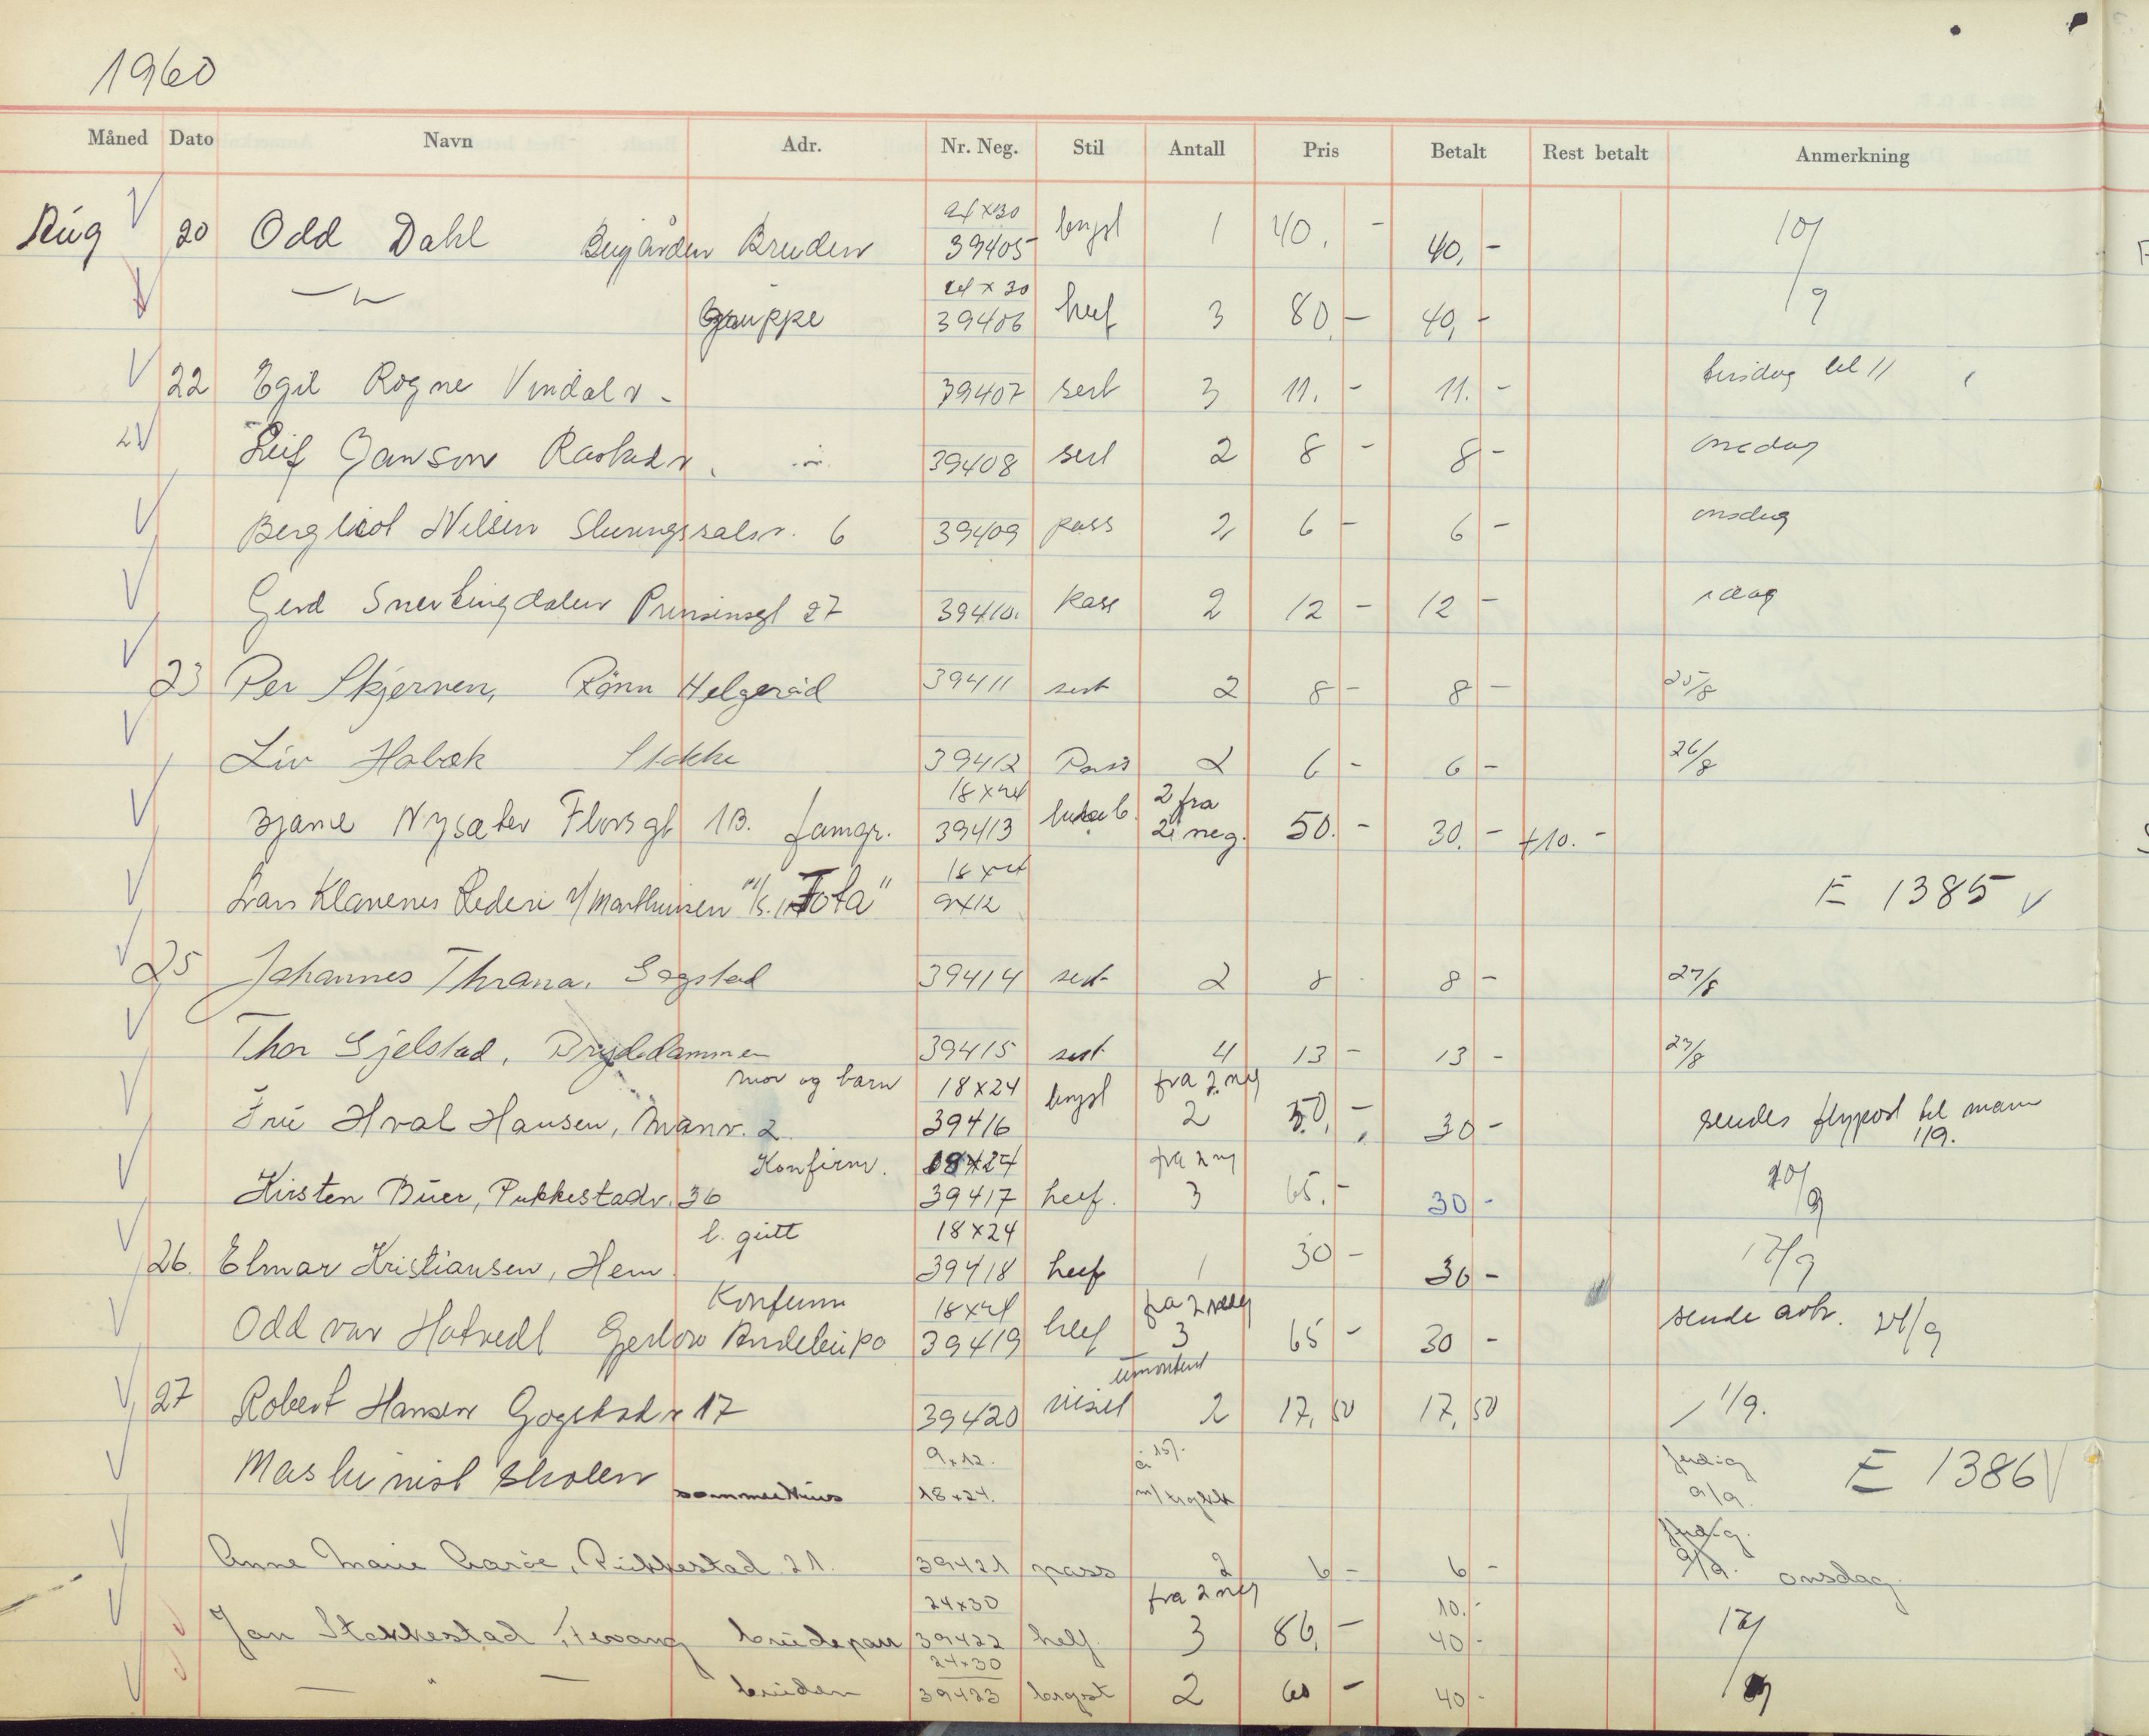 1960
Måned Dato Navn Adr. Nr. Neg. Stil Antall Pris Betalt Rest betalt Anmerkning
24x30
Aug 20 Odd Dahl Bruden 39405 bryst 1 40,- 40,- 10/9
24x30
gruppe 39406 helf 3 80,- 40,-
22 Egil Rogne Vindal v- 39407 sert 3 11.- 11.- tirsdag kl 11
Leif Janson 39408 sert 2 8- 8- onsdag
Bergliot Nilsen 6 39409 pass 2 6- 6- onsdag
Gerd Snertingdalen Prinsensgt 27 39410. pass 2 12- 12- idag
23 Per Skjerven, Rønn Helgerød 39411 sert 2 8- 8- 25/8
Liv Habæk Stokke 39412 Pass 2 6- 6- 26/8
18x24 2 fra
Bjarne Nysæter Florsgt 1B. famgr. 39413 2 neg. 50.- 30.- +10.-
18x24
Lars Klavenes Rederi v/Marthinsen M/S. "Tota" 9x12 E 1385
25 Johannes Thrana. Gogstad 39414 sert 2 8 8- 27/8
Thor Gjelstad, Brydedammen 39415 sert 4 13- 13- 27/8
mor og barn 18x24 fra 2. neg
Frú Hval Hansen, 2. 39416 bryst 2 50,- 30- sendes flypost til mann 1/9.
Konfirm. 18x24 fra 2 neg
Kirsten Búer, Pukkestadv. 36 39417 helf. 3 65.- 30- 20/9
l. gútt 18x24
26. Elmar Kristiansen, Hem 39418 helf 1 30- 30- 17/9
Konfirm 18x24 fra 2 neg
Oddvar Hotvedt Andebu po 39419 helf 3 65- 30- sende avtr. 24/9
umontert
27 Robert Hansen Gogstadv 17 39420 visit 2 17,50 17,50 1/9.
9x12. á 15/-
Maskinistskolen 18x24. ferdig 9/9. E 1386
ferdig 9/9.
Anne Marie Pukkestad 21. 39421 pass 2 6- 6- onsdag
24x30 fra 2 neg 10.-
Jan Stokkestad, Tevang brúdepar 39422 helf 3 86,- 40- 17/9
24x30
- " - brúden 39423 brystt 2 60- 40-